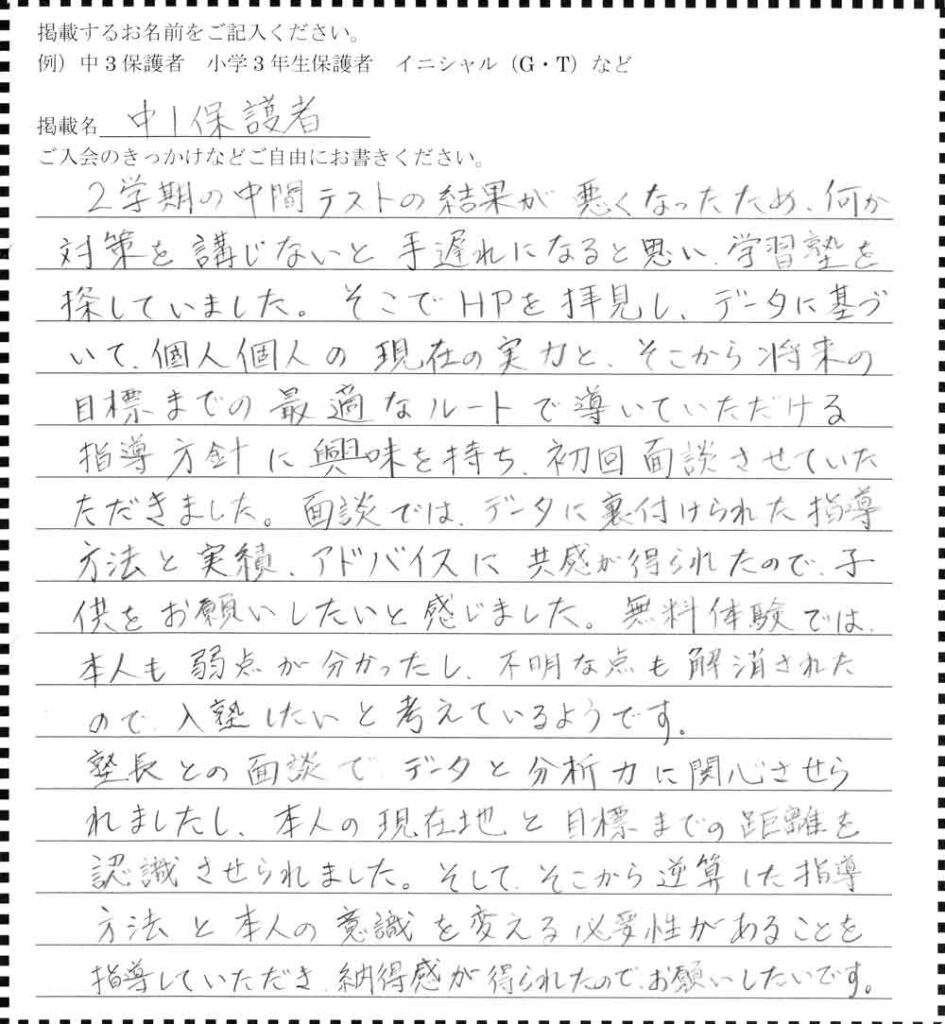 掲載するお名前をご記入ください。
例）中３保護者　小学３年生保護者　イニシャル（G・T）など
掲載名 中1保護者
ご入会のきっかけなどご自由にお書きください。
２学期の中間テストの結果が悪くなったため、何か
対策を講じないと手遅れになると思い、学習塾を
探していました。そこでHPを拝見し、データに基づ
いて、個人個人の現在の実力と、そこから将来の
目標までの最適なルートで導いていただける
指導方針に興味を持ち、初回面談させていた
ただきました。面談では、データに裏付けられた指導
方法と実績、アドバイスに共感が得られたので、子
供をお願いしたいと感じました。無料体験では、
本人も弱点が分かったし、不明な点も解消された
ので、入塾したいと考えているようです。
塾長との面談で、データと分析力に関心させら
れましたし、本人の現在地と目標までの距離を
認識させられました。そして、そこから逆算した指導
方法と本人の意識を変える必要性があることを
指導していただき、納得感が得られたので、お願いしたいです。